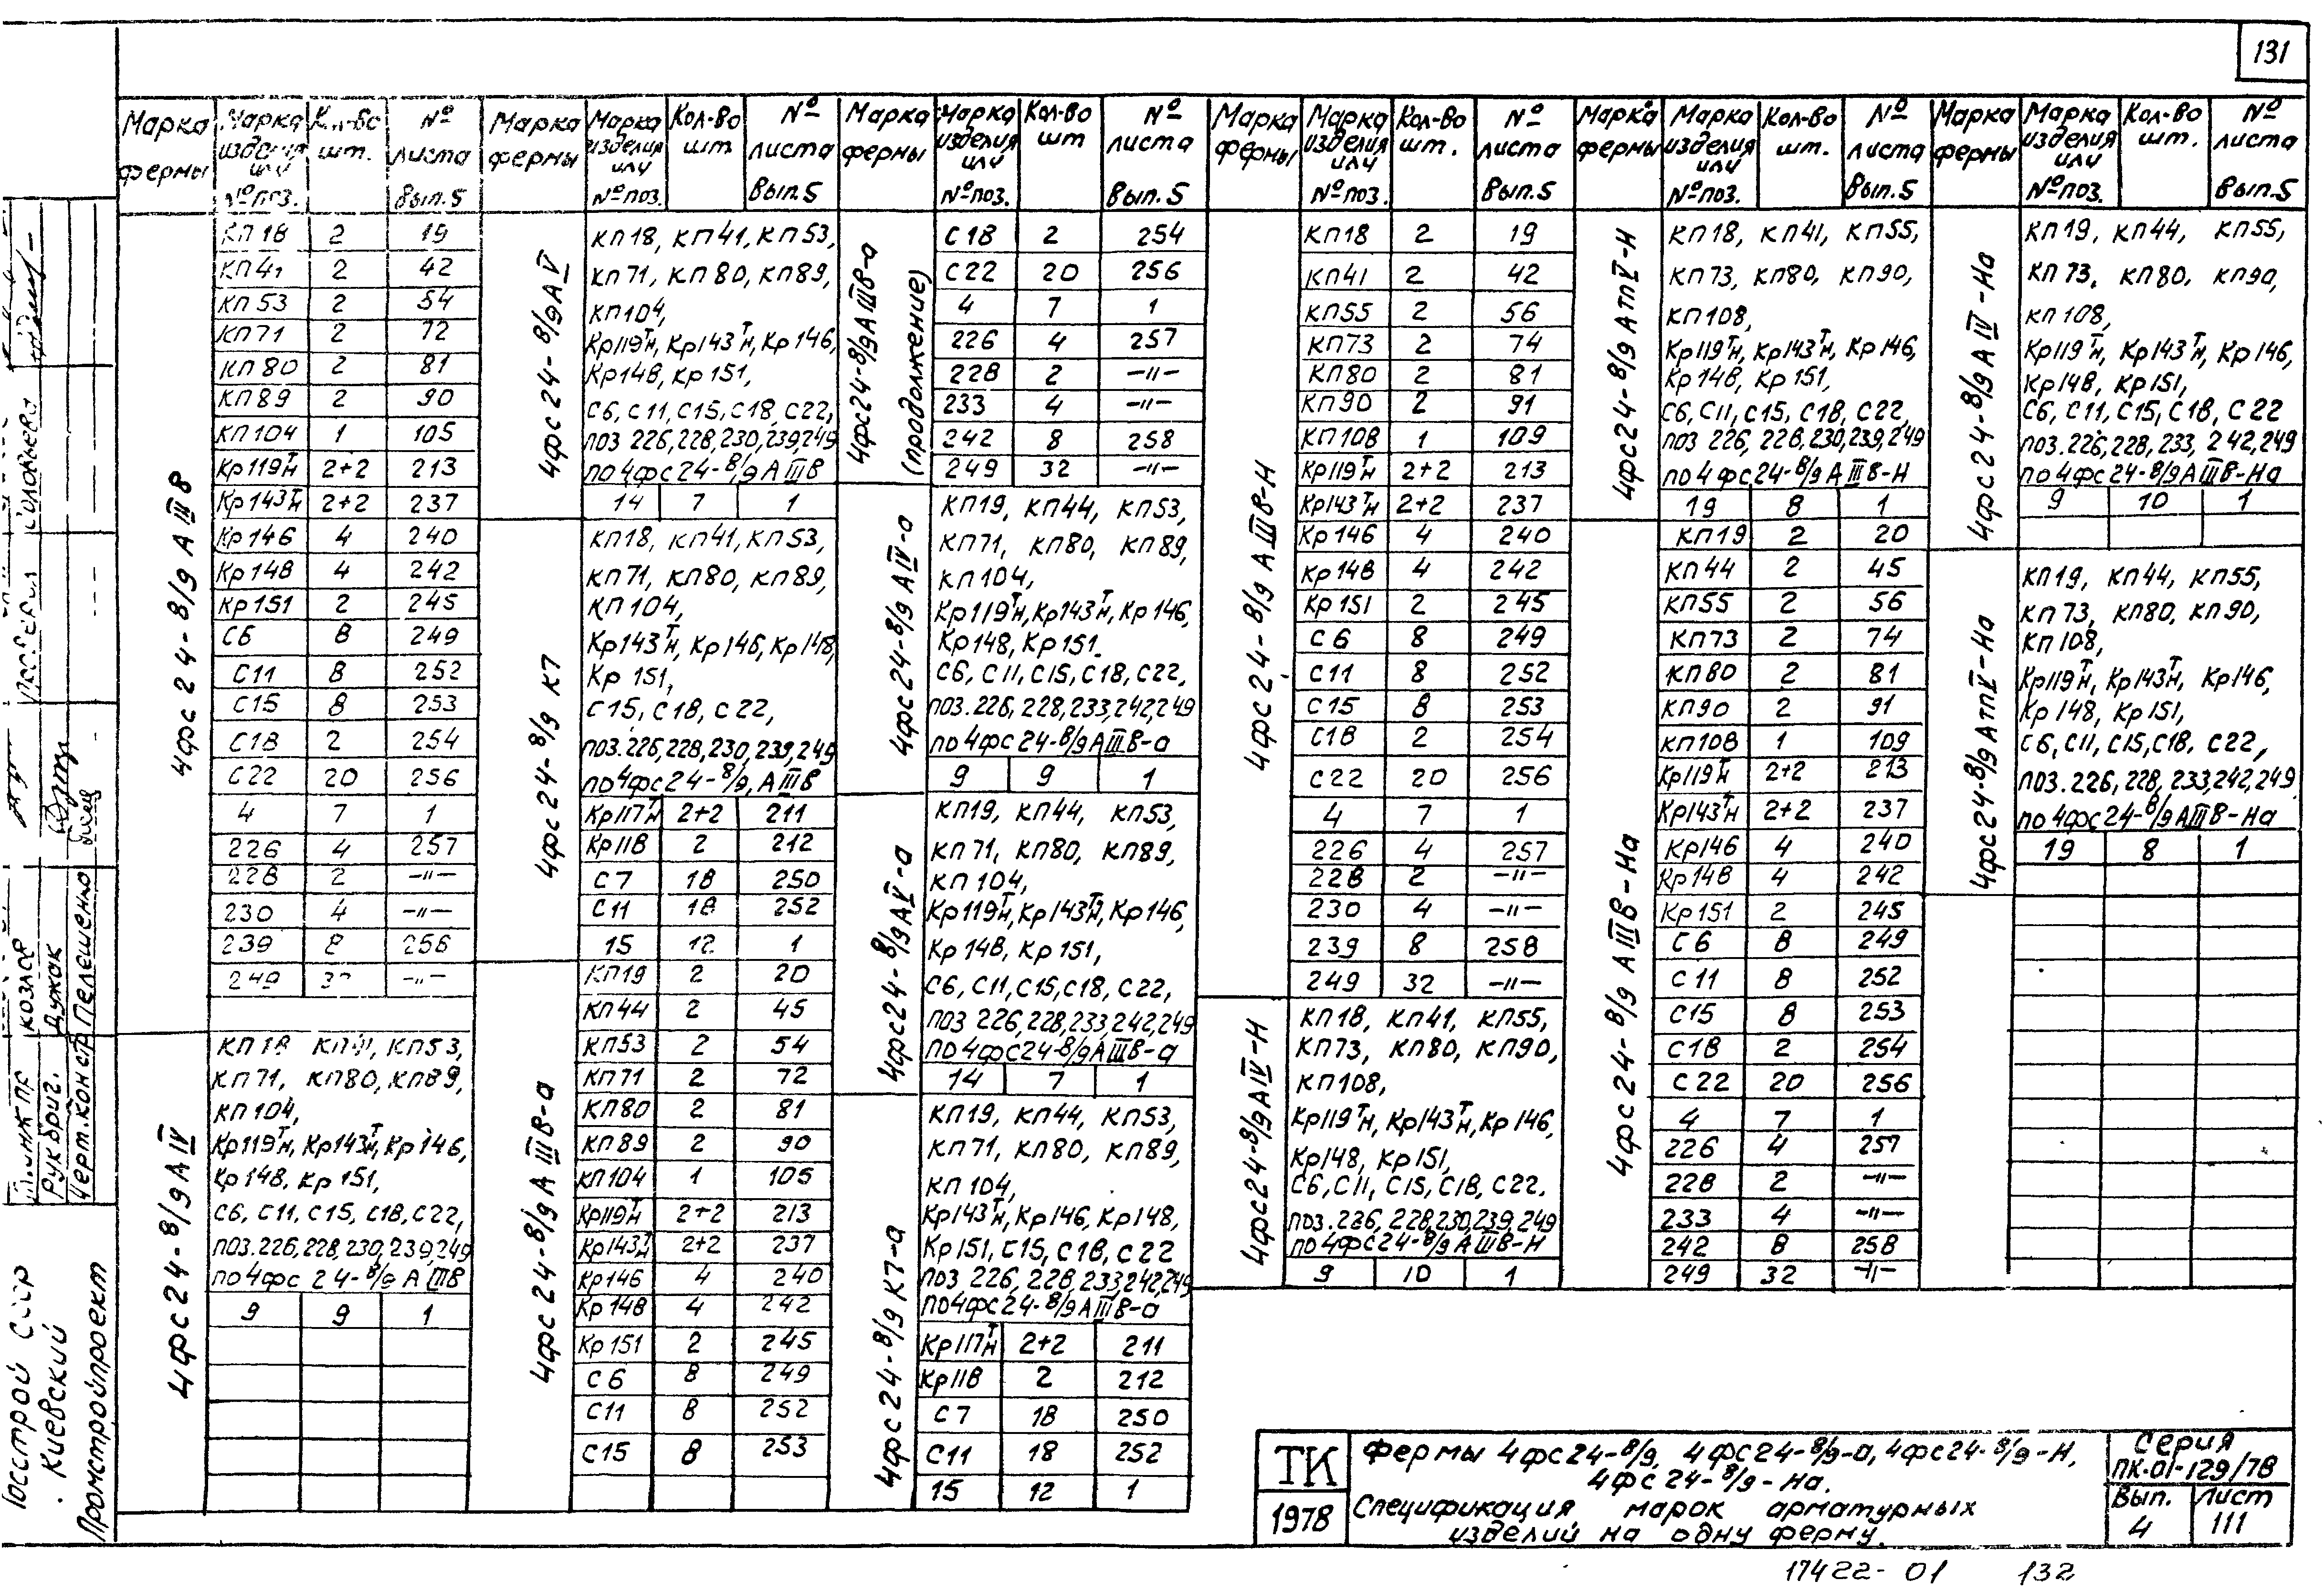 131
Марка фермы | Марка изделия или № поз. | Кол-во шт. | № листа Вып. 5
4фс 24-8/9 АIIIв
КП18 2 19
КП41 2 42
КП53 2 54
КП71 2 72
КП80 2 81
КП89 2 90
КП104 1 105
Кр119тн 2+2 213
Кр143тн 2+2 237
Кр146 4 240
Кр148 4 242
Кр151 2 245
С6 8 249
С11 8 252
С15 8 253
С18 2 254
С22 20 256
4 7 1
226 4 257
228 2 -"-
230 4 -"-
239 8 258
249 32 -"-
4фс24-8/9 АIV
КП18 КП41, КП53,
КП71, КП80, КП89,
КП104,
Кр119тн, Кр143тн, Кр146,
Кр148, Кр151,
С6, С11, С15, С18, С22,
поз. 226, 228, 230, 239, 249
по 4фс 24-8/9 АIIIв
9 9 1
Марка фермы | Марка изделия или № поз. | Кол-во шт | № листа Вып. 5
4фс 24-8/9 АV
КП18, КП41, КП53,
КП71, КП80, КП89,
КП104,
Кр119тн, Кр143тн, Кр146,
Кр148, Кр151,
С6, С11, С15, С18, С22,
поз 226, 228, 230, 239, 249
по 4фс 24-8/9 АIIIв
14 7 1
4фс 24-8/9 К7
КП18, КП41, КП53,
КП71, КП80, КП89,
КП104,
Кр143тн, Кр146, Кр148,
Кр151,
С15, С18, С22,
поз. 226, 228, 230, 239, 249
по 4фс 24-8/9, АIIIв
Кр117тн 2+2 211
Кр118 2 212
С7 18 250
С11 18 252
15 12 1
4фс 24-8/9 АIIIв-а
КП19 2 20
КП44 2 45
КП53 2 54
КП71 2 72
КП80 2 81
КП89 2 90
КП104 1 105
Кр119тн 2+2 213
Кр143тн 2+2 237
Кр146 4 240
Кр148 4 242
Кр151 2 245
С6 8 249
С11 8 252
С15 8 253
Марка фермы | Марка изделия или № поз. | Кол-во шт | № листа Вып. 5
4фс24-8/9 АIIIв-а (продолжение)
С18 2 254
С22 20 256
4 7 1
226 4 257
228 2 -"-
233 4 -"-
242 8 258
249 32 -"-
4фс 24-8/9 АIV-а
КП19, КП44, КП53,
КП71, КП80, КП89,
КП104,
Кр119тн, Кр143тн, Кр146,
Кр148, Кр151.
С6, С11, С15, С18, С22,
поз. 226, 228, 233, 242, 249
по 4фс 24-8/9 АIIIв-а
9 9 1
4фс24-8/9 АV-а
КП19, КП44, КП53,
КП71, КП80, КП89,
КП104,
Кр119тн, Кр143тн, Кр146,
Кр148, Кр151,
С6, С11, С15, С18, С22,
поз 226, 228, 233, 242, 249
по 4фс24-8/9 АIIIв-а
14 7 1
4фс 24-8/9 К7-а
КП19, КП44, КП53,
КП71, КП80, КП89,
КП104,
Кр143тн, Кр146, Кр148,
Кр151, С15, С18, С22
поз 226, 228, 233, 242, 249
по 4фс 24-8/9 АIIIв-а
Кр117тн 2+2 211
Кр118 2 212
С7 18 250
С11 18 252
15 12 1
Марка фермы | Марка изделия или № поз. | Кол-во шт. | № листа Вып. 5
4фс 24-8/9 АIIIв-Н
КП18 2 19
КП41 2 42
КП55 2 56
КП73 2 74
КП80 2 81
КП90 2 91
КП108 1 109
Кр119тн 2+2 213
Кр143тн 2+2 237
Кр146 4 240
Кр148 4 242
Кр151 2 245
С6 8 249
С11 8 252
С15 8 253
С18 2 254
С22 20 256
4 7 1
226 4 257
228 2 -"-
230 4 -"-
239 8 258
249 32 -"-
4фс24-8/9 АIV-Н
КП18, КП41, КП55,
КП73, КП80, КП90,
КП108,
Кр119тн, Кр143тн, Кр146,
Кр148, Кр151,
С6, С11, С15, С18, С22.
поз. 226, 228, 230, 239, 249
по 4фс 24-8/9 АIIIв-Н
9 10 1
Марка фермы | Марка изделия или № поз. | Кол-во шт. | № листа Вып. 5
4фс24-8/9 АтпV-Н
КП18, КП41, КП55,
КП73, КП80, КП90,
КП108,
Кр119тн, Кр143тн, Кр146,
Кр148, Кр151,
С6, С11, С15, С18, С22,
поз 226, 228, 230, 239, 249
по 4фс 24-8/9 АIIIв-Н
19 8 1
4фс 24-8/9 АIIIв-На
КП19 2 20
КП44 2 45
КП55 2 56
КП73 2 74
КП80 2 81
КП90 2 91
КП108 1 109
Кр119тн 2+2 213
Кр143тн 2+2 237
Кр146 4 240
Кр148 4 242
Кр151 2 245
С6 8 249
С11 8 252
С15 8 253
С18 2 254
С22 20 256
4 7 1
226 4 257
228 2 -"-
233 4 -"-
242 8 258
249 32 -"-
Марка фермы | Марка изделия или № поз. | Кол-во шт. | № листа Вып. 5
4фс 24-8/9 АIV-На
КП19, КП44, КП55,
КП73, КП80, КП90,
КП108,
Кр119тн, Кр143тн, Кр146,
Кр148, Кр151,
С6, С11, С15, С18, С22
поз. 226, 228, 233, 242, 249
по 4фс 24-8/9 АIIIв-На
9 10 1
4фс24-8/9 АтпV-На
КП19, КП44, КП55,
КП73, КП80, КП90,
КП108,
Кр119тн, Кр143тн, Кр146,
Кр148, Кр151,
С6, С11, С15, С18, С22,
поз. 226, 228, 233, 242, 249
по 4фс 24-8/9 АIIIв-На
19 8 1
Госстрой СССР
Киевский
Промстройпроект
Рук. бриг. Дужак
Черт. констр Пелешенко
ТК
1978
Фермы 4фс24-8/9, 4фс24-8/9-а, 4фс24-8/9-Н,
4фс24-8/9-На.
Спецификация марок арматурных
изделий на одну ферму.
Серия
ПК-01-129/78
Вып. Лист
4 111
17422-01 132